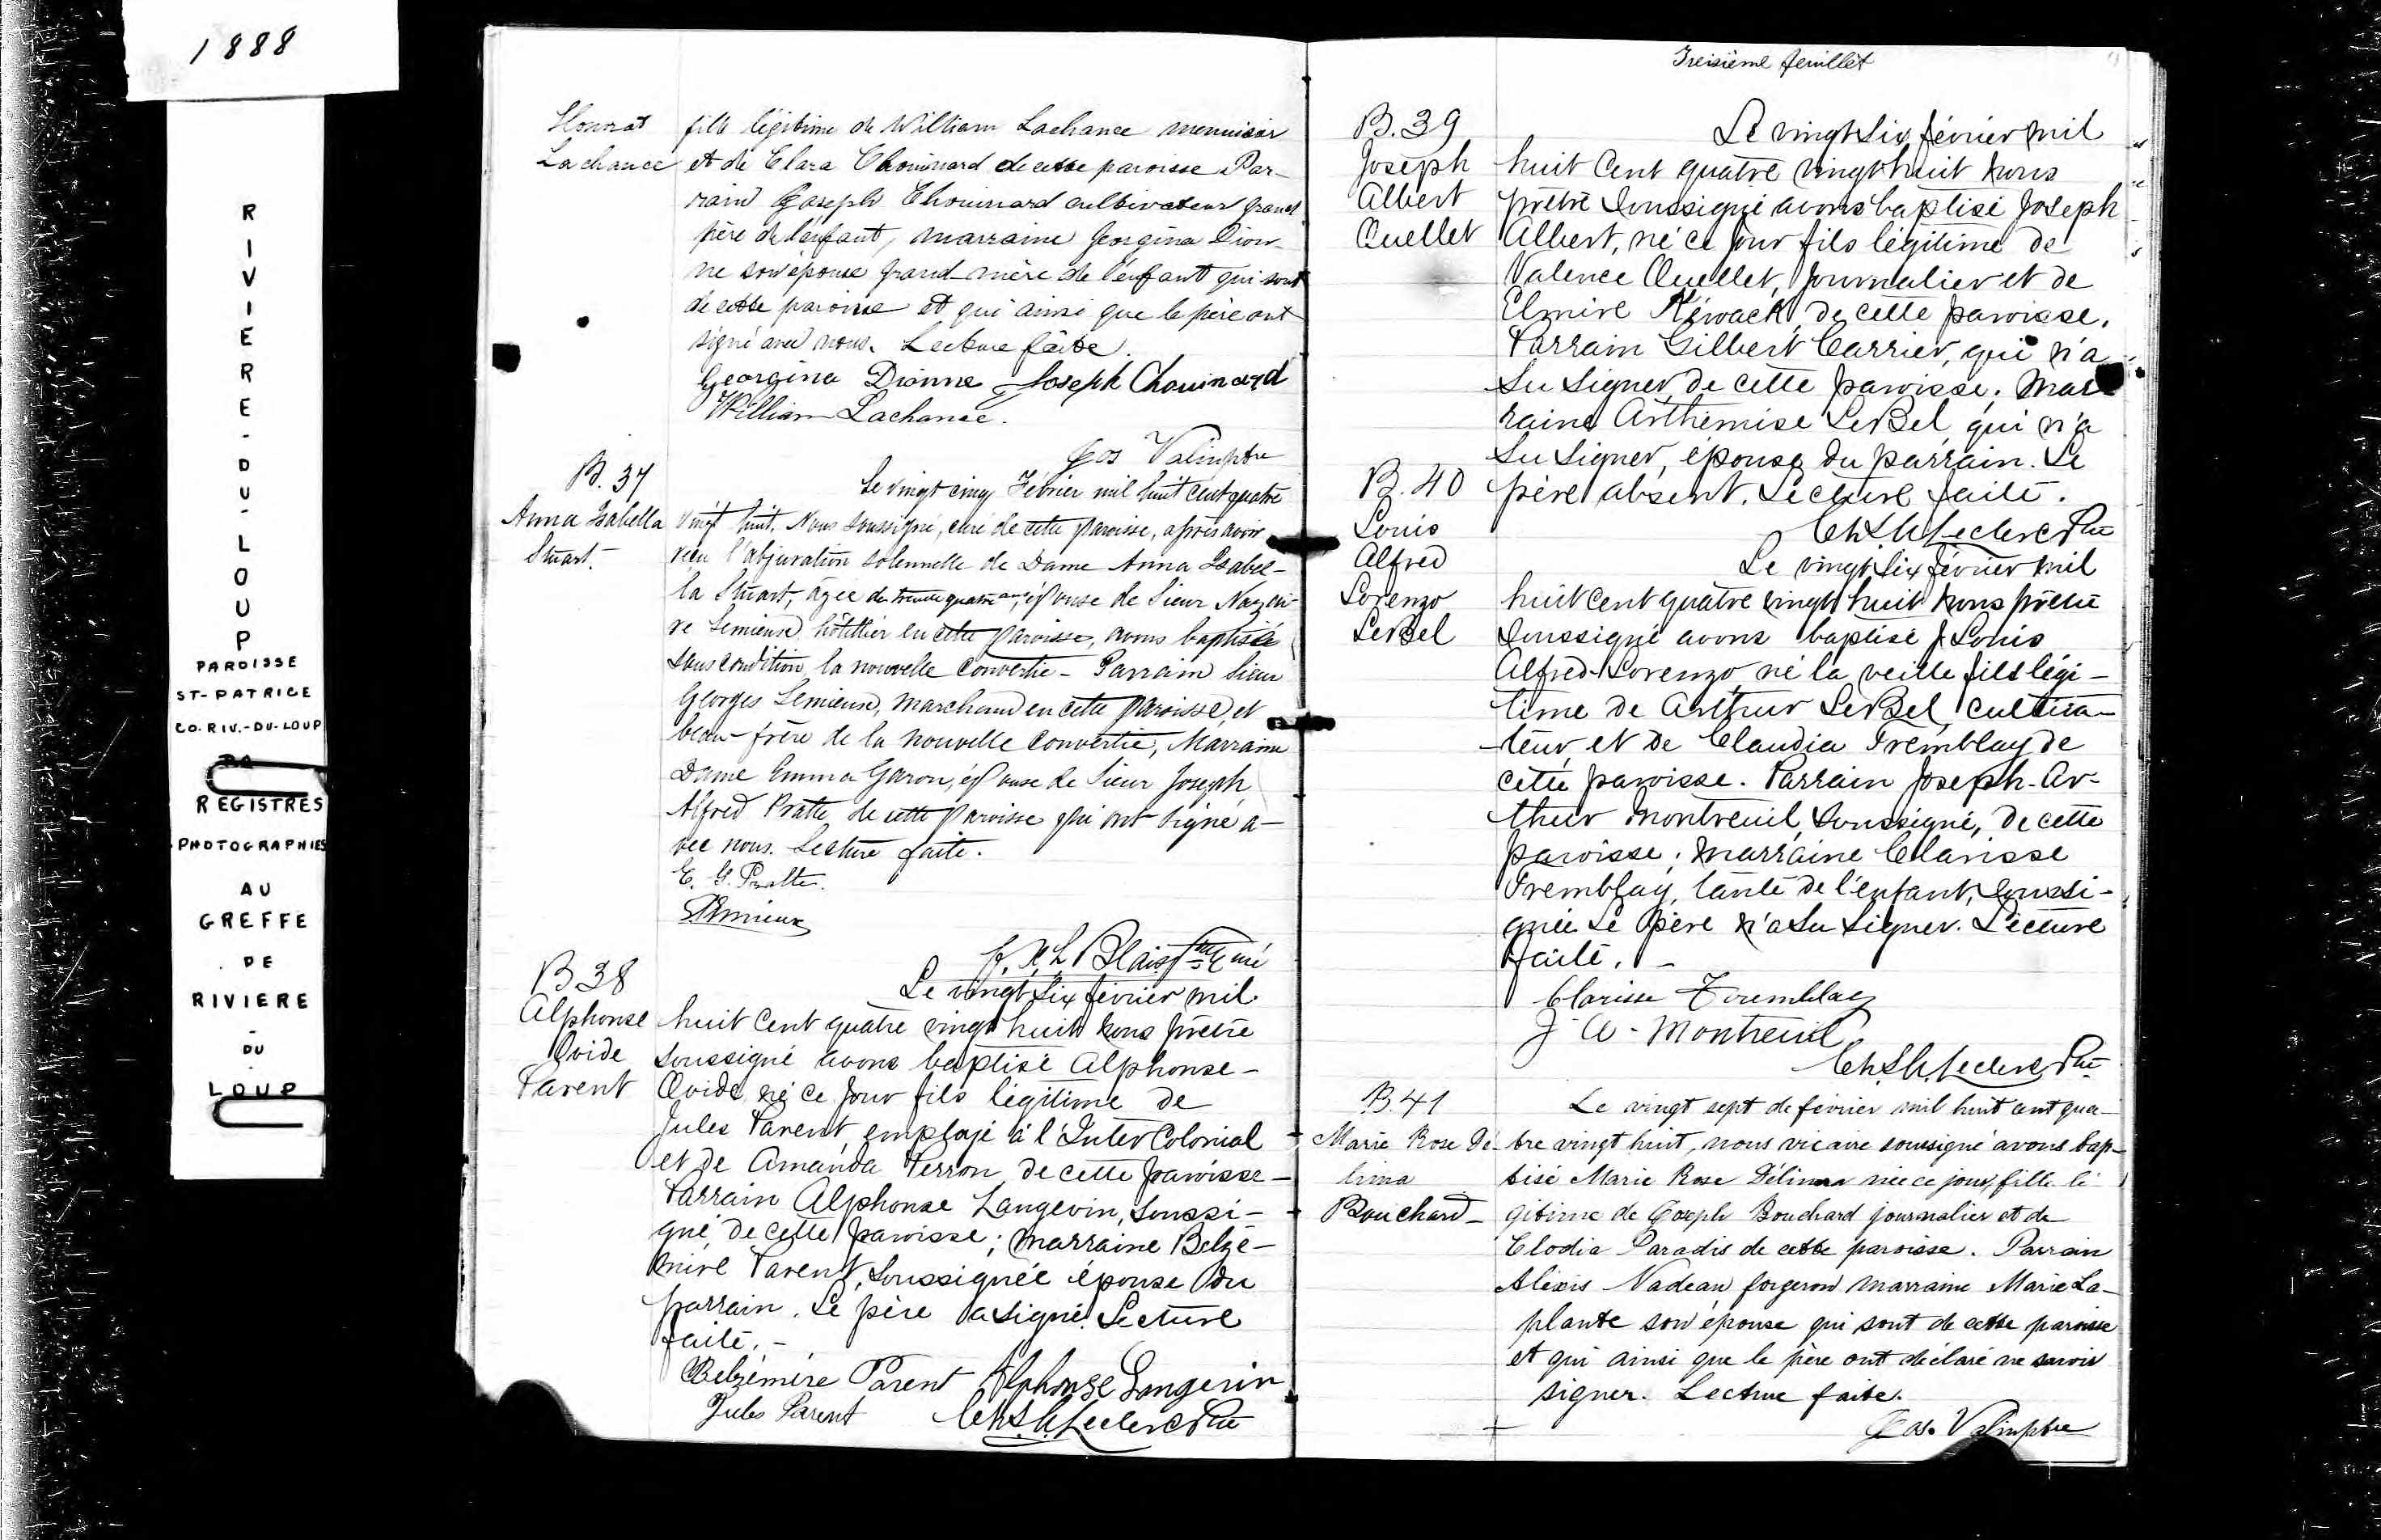 1888
RIVIERE-DU-LOUP
PAROISSE
ST-PATRICE
CO. RIV.-DU-LOUP
REGISTRES
PHOTOGRAPHIES
AU
GREFFE
DE
RIVIERE
-
DU
-
LOUP
Lachance
fille légitime de William Lachance menuisier
et de Clara Chouinard de cette paroisse Par-
rain Joseph Chouinard cultivateur grand
père de l'enfant, marraine Georgina Dion-
ne son épouse grand-mère de l'enfant qui sont
de cette paroisse et qui ainsi que le père ont
signé avec nous. Lecture faite.
Georgina Dionne Joseph Chouinard
William Lachance.
Jos Valin ptre
B. 37
Anna Isabella
Stuart.
Le vingt cinq Février mil huit cent quatre
vingt huit. Nous soussigné, curé de cette paroisse, après avoir
reçu l'abjuration solennelle de Dame Anna Isabel-
la Stuart, âgée de trente quatre ans, épouse de Sieur Nazai-
re Lemieux hôtellier en cette paroisse, avons baptisée
sous condition, la nouvelle convertie - Parrain Sieur
Georges Lemieux, marchand en cette paroisse, et
beau-frère de la nouvelle convertie, Marraine
Dame Emma Garon, épouse de Sieur Joseph
Alfred Pratte de cette paroisse qui ont signé a-
vec nous. Lecture faite.
E. G. Pratte.
Lemieux
Blais Ptre Curé
B 38
Alphonse
Ovide
Parent
Le vingt six février mil
huit cent quatre vingt huit nous prêtre
soussigné avons baptisé Alphonse-
Ovide né ce jour fils légitime de
Jules Parent, employé à l'InterColonial
et de Amanda Perron de cette paroisse-
Parrain Alphonse Langevin, soussi-
gné, de cette paroisse; marraine Belzé-
mire Parent, soussignée épouse du
parrain. Le père a signé. Lecture
faite. -
Belzémére Parent Alphonse Langevin
Jules Parent Leclerc Ptre
Treisième feuillet
B. 39
Joseph
Albert
Ouellet
Le vingt six février mil
huit cent quatre vingt huit nous
prêtre soussigné avons baptisé Joseph
Albert, né ce jour fils légitime de
Valence Ouellet, journalier et de
Elmire Kéwack, de cette paroisse.
Parrain Gilbert Carrier, qui n'a
su signer de cette paroisse; Mar-
raine Arthémise LeBel qui n'a
su signer, épouse du parrain. Le
père absent. Lecture faite.
Leclerc Ptre
B. 40
Louis
Alfred
Lorenzo
LeBel
Le vingt six février mil
huit cent quatre vingt huit nous prêtre
soussigné avons baptisé J Louis
Alfred-Lorenzo né la veille fils légi-
time de Arthur LeBel, cultiva-
teur, et de Claudia Tremblay de
cette paroisse. Parrain Joseph-Ar-
thur Montreuil, soussigné, de cette
paroisse; marraine Clarisse
Tremblay, tante de l'enfant, soussi-
gnée Le père n'a su signer. Lecture
faite. -
Clarisse Tremblay
J A - Montreuil
Leclerc Ptre
B. 41
Marie Rose Dé-
lima
Bouchard-
Le vingt sept de février mil huit cent qua-
tre vingt huit, nous vicaire soussigné avons bap-
tisé Marie Rose Délima née ce jour, fille lé-
gitime de Joseph Bouchard journalier et de
Elodia Paradis de cette paroisse. Parrain
Alexis Nadeau forgeron marraine Marie La-
plante son épouse qui sont de cette paroisse
et qui ainsi que le père ont déclaré ne savoir
signer. Lecture faite.
Jos. Valin ptre